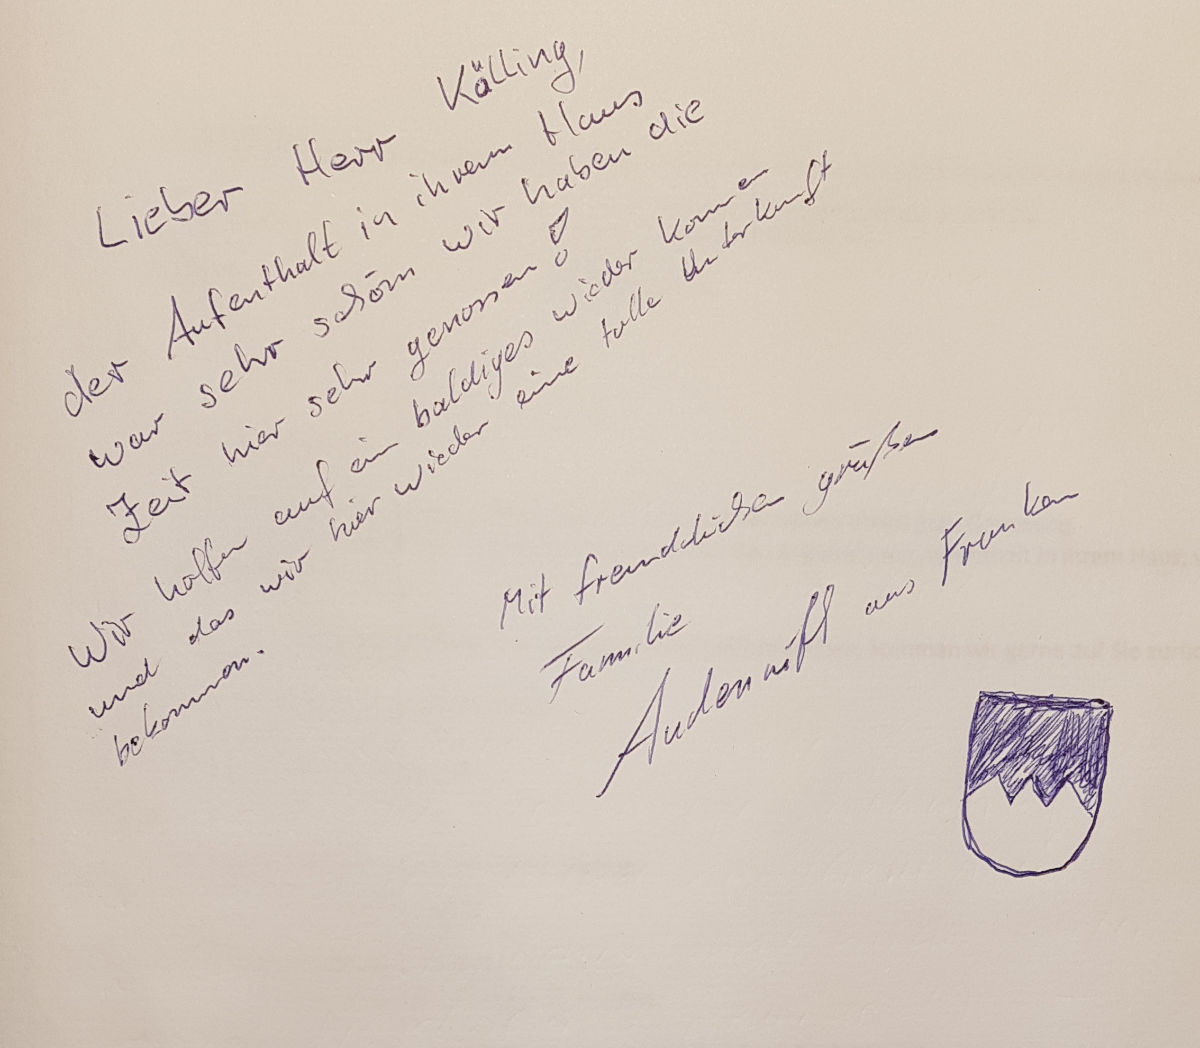 Lieber Herr Källing,
der Aufenthalt in ihrem Haus
war sehr schön wir haben die
Zeit hier sehr genossen!
Wir hoffen auf ein baldiges wieder kommen
und das wir hier wieder eine tolle Unterkunft
bekommen.
Mit freundlichen grüßen
Familie
aus Franken